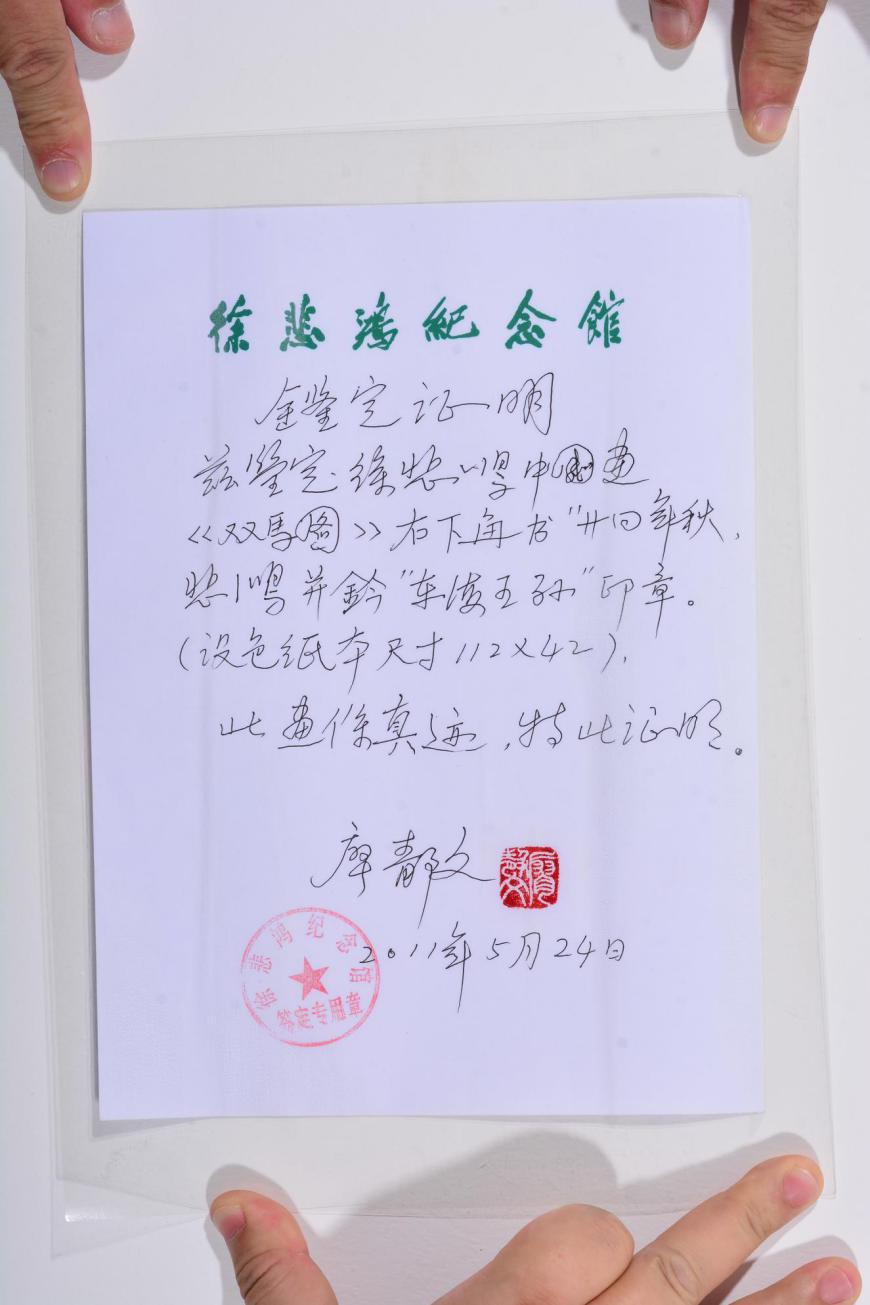 徐悲鸿紀念館
鉴定证明
兹鉴定徐悲鸿中国画
《双马图》右下角书“廿四年秋，
悲鸿并鈐“东海王孙”印章。
（设色纸本尺寸112×42），
此画係真迹，特此证明。
廖静文
2011年5月24日
徐悲鸿纪念馆
鉴定专用章